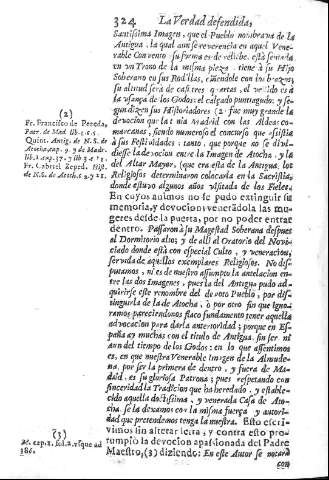 324 La Verdad defendida,
Santissima Imagen, que el Pueblo nombrava de la
Antigua, la qual aun se reverencia en aquel Vene-
rable Convento su forma es de relibe, està sentada
en un Trono de la misma pieza, tiene à su Hijo
Soberano en sus Rodillas, ciñendole con los brazos,
su altura serà de casi tres quartas, el vestido es à
la usança de los Godos: el calçado puntiagudo: y se-
gun dizen sus Historiadores (2) fue muy grande la
devocion que la tuvia Madrid con las Aldeas co-
marcanas, siendo numeroso el concurso que assistia
à sus Festividades: tanto, que porque no se divi-
diesse la devocion entre la Imagen de Atocha, y la
del Altar Mayor, (que era esta de la Antigua, los
Religiosos determinaron colocarla en la Sacristia,
donde estuvo algunos años visitada de los Fieles.
En cuyos animos no le pudo extinguir su
memoria, y devocion venerandola las mu-
geres desde la puerta, por no poder entrar
dentro. Passaron à su Magestad Soberana despues
al Dormitorio alto; y de alli al Oratorio del Novi-
ciado donde està con especial Culto, y veneracion,
servida de aquellos exemplares Religiosos. No dis-
putamos, ni es de nuestro assumpto la antelacion en-
tre las dos Imagenes, pues la del Antigua pudo ad-
quirirse este renombre del devoto Pueblo, por dis-
tinguirla de la de Atocha, ò por otro fin que igno-
ramos pareciendonos flaco fundamento tener aquella
advocacion para darla anterioridad; porque en Es-
paña ay muchas con el titulo de Antigua, sin ser ni
aun del tiempo de los Godos: en lo que assentimos
es, en que nuestra Venerable Imagen de la Almude-
na, por ser la primera de dentro, y fuera de Ma-
drid, es su gloriosa Patrona; pues respetando con
sinceridad la Tradicion que ha heredado, y estable-
cido aquella doctissima, y venerada Casa de Ato-
cha, se la dexamos con la misma fuerça, y autori-
dad que pretendemos tenga la nuestra. Esto escri-
vimos sin alterar letra, y contra esto pro-
rumpio la devocion apassionada del Padre
Maestro, (3) diziendo: En este Autor se notarà
con
(2)
Fr. Francisco de Pereda,
Patr. de Mad. lib. 1. c. 5.
Quint. Antig. de N. S. de
Atocha, cap. 9. y de Madr.
lib. 1. cap. 37. y lib. 3. c. 2.
Fr. Gabriel Zeped. Hist.
de N. S. de Atoch. c. 9. 21.
(3)
M. cap. 2. fol. 2. risque ad
186.